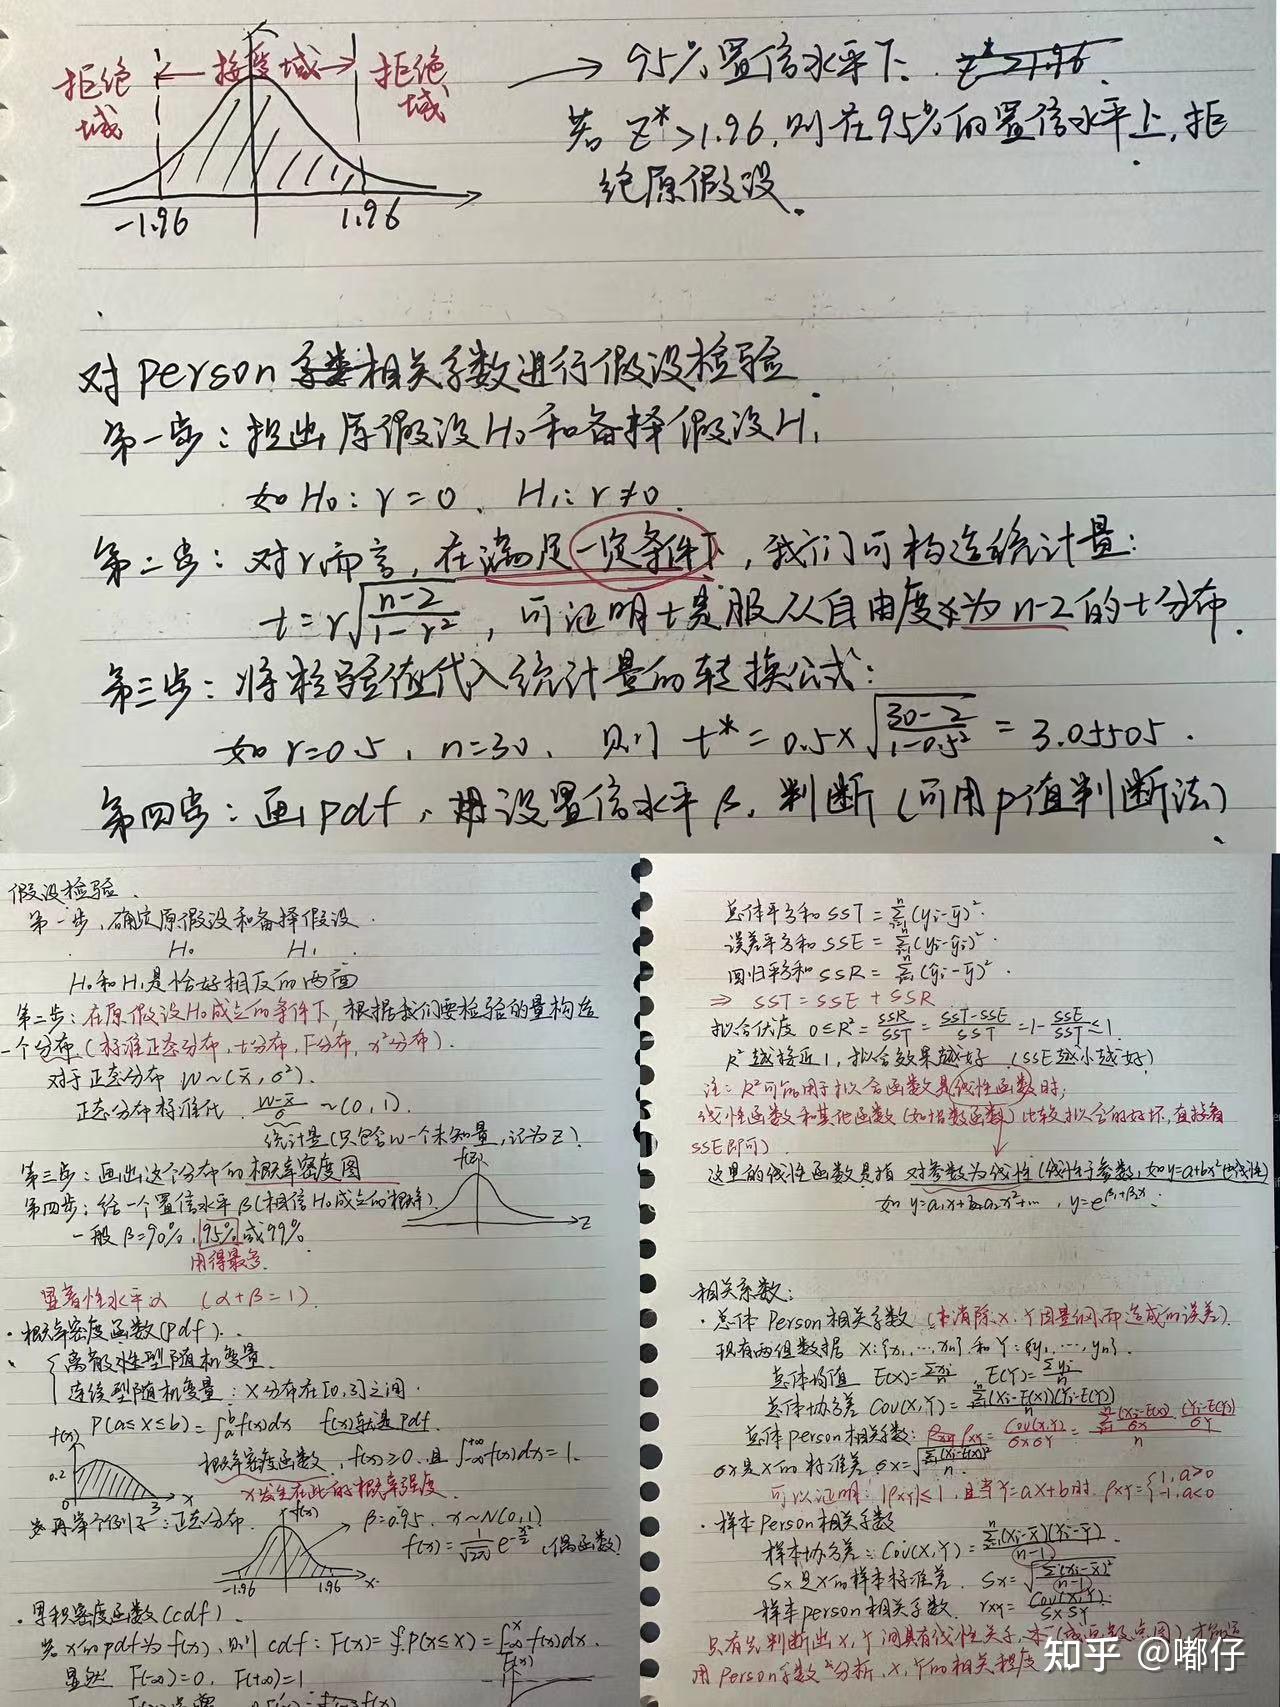 拒绝域 接受域 拒绝域
-1.96 1.96
95%置信水平下. z*>1.96.
若 z*>1.96,则在95%的置信水平上,拒
绝原假设.
对person系数相关系数进行假设检验.
第一步:提出原假设H₀和备择假设H₁
如H₀: r=0, H₁: r≠0.
第二步:对r而言,在满足一定条件下,我们可构造统计量:
t=r√((n-2)/(1-r²)),可证明t是服从自由度为n-2的t分布.
第三步:将检验值代入统计量的转换公式:
如r=0.5, n=30, 则 t*=0.5×√((30-2)/(1-0.5²))=3.05505.
第四步:画pdf,设置信水平β,判断(可用p值判断法)
假设检验.
第一步,确定原假设和备择假设.
H₀ H₁
H₀和H₁是恰好相反的两面
第二步:在原假设H₀成立的条件下,根据我们要检验的量构造
一个分布(标准正态分布,t分布,F分布,x²分布).
对于正态分布 W~(x̄,σ²).
正态分布标准化. (W-x̄)/σ ~(0,1).
统计量(只包含W一个未知量,记为Z).
第三步:画出这个分布的概率密度图
第四步:给一个置信水平β(相信H₀成立的概率).
f(z) z
一般β=90%,95%或99%.
用得最多.
显著性水平α (α+β=1).
·概率密度函数(pdf).
离散性型随机变量.
连续型随机变量:X分布在[0,3]之间.
P(a≤x≤b)=∫ₐᵇf(x)dx f(x)就是pdf.
概率密度函数,f(x)≥0,且∫₋∞⁺∞f(x)dx=1.
x发生在此的概率强度.
f(x) 0.2 0 3 x
再举个例子:正态分布.
f(x) β=0.95. x~N(0,1)
f(x)=1/√2π e^(-x²/2) (偶函数)
-1.96 1.96 x
·累积密度函数(cdf).
若x的pdf为f(x),则cdf:F(x)=P(x≤x)=∫₋∞ˣf(x)dx.
显然 F(-∞)=0, F(+∞)=1
F(x)
总体平方和SST=Σᵢ₌₁ⁿ(yᵢ-ȳ)².
误差平方和SSE=Σᵢ₌₁ⁿ(yᵢ-ŷᵢ)².
回归平方和SSR=Σᵢ₌₁ⁿ(ŷᵢ-ȳ)².
⇒ SST=SSE+SSR
拟合优度 0≤R²=SSR/SST=(SST-SSE)/SST=1-SSE/SST≤1
R²越接近1,拟合效果越好.(SSE越小越好)
注:R²可能用于拟合函数是线性函数时;
线性函数和其他函数(如指数函数)比较拟合的好坏,直接看
SSE即可).
这里的线性函数是指 对参数为线性(线性于参数,如y=a+bx²也线性)
相关系数:
·总体Person相关系数(消除X,Y因量纲而造成的误差).
现有两组数据 X:{x₁,…,xₙ}和Y:{y₁,…,yₙ}.
总体均值 E(X)=Σxᵢ/n, E(Y)=Σyᵢ/n
总体协方差 Cov(X,Y)=Σᵢ₌₁ⁿ(Xᵢ-E(X))(Yᵢ-E(Y))/n
总体person相关系数:ρXY=Cov(X,Y)/σXσY=Σᵢ₌₁ⁿ((Xᵢ-E(X))/σX)((Yᵢ-E(Y))/σY)/n
σx是X的标准差 σx=√(Σᵢ₌₁ⁿ(Xᵢ-E(X))²/n).
可以证明:|ρXY|≤1,且当Y=aX+b时,ρXY={1,a>0 -1,a<0
·样本Person相关系数
样本协方差:Cov(X,Y)=Σᵢ₌₁ⁿ(Xᵢ-X̄)(Yᵢ-Ȳ)/(n-1)
Sx是X的样本标准差. Sx=√(Σ(Xᵢ-X̄)²/(n-1))
样本person相关系数. rXY=Cov(X,Y)/SXSY
只有先判断出X,Y间具有线性关系,
用Person系数分析,X,Y的相关程度
知乎 @嘟仔